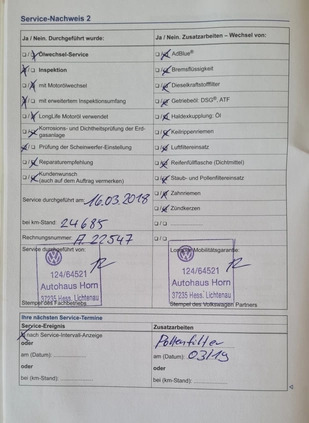 Service-Nachweis 2
Ja / Nein. Durchgeführt wurde:
Ölwechsel-Service
Inspektion
mit Motorölwechsel
mit erweitertem Inspektionsumfang
LongLife Motoröl verwendet
Korrosions- und Dichtheitsprüfung der Erd-
gasanlage
Prüfung der Scheinwerfer-Einstellung
Reparaturempfehlung
Kundenwunsch
(auch auf dem Auftrag vermerken)
Service durchgeführt am: 16.03.2018
bei km-Stand: 24685
Rechnungsnummer: A 22547
Service durchgeführt von:
124/64521
Autohaus Horn
37235 Hess. Lichtenau
Stempel des Fachbetriebs
Ja / Nein. Zusatzarbeiten – Wechsel von:
AdBlue®
Bremsflüssigkeit
Dieselkraftstofffilter
Getriebeöl: DSG®, ATF
Haldexkupplung: Öl
Keilrippenriemen
Luftfiltereinsatz
Reifenfüllflasche (Dichtmittel)
Staub- und Pollenfiltereinsatz
Zahnriemen
Zündkerzen
Mobilitätsgarantie:
124/64521
Autohaus Horn
37235 Hess. Lichtenau
Stempel des Volkswagen Partners
Ihre nächsten Service-Termine
Service-Ereignis
nach Service-Intervall-Anzeige
oder
am (Datum):
oder
bei (km-Stand):
Zusatzarbeiten
Pollenfilter
am (Datum): 03/19
oder
bei (km-Stand):